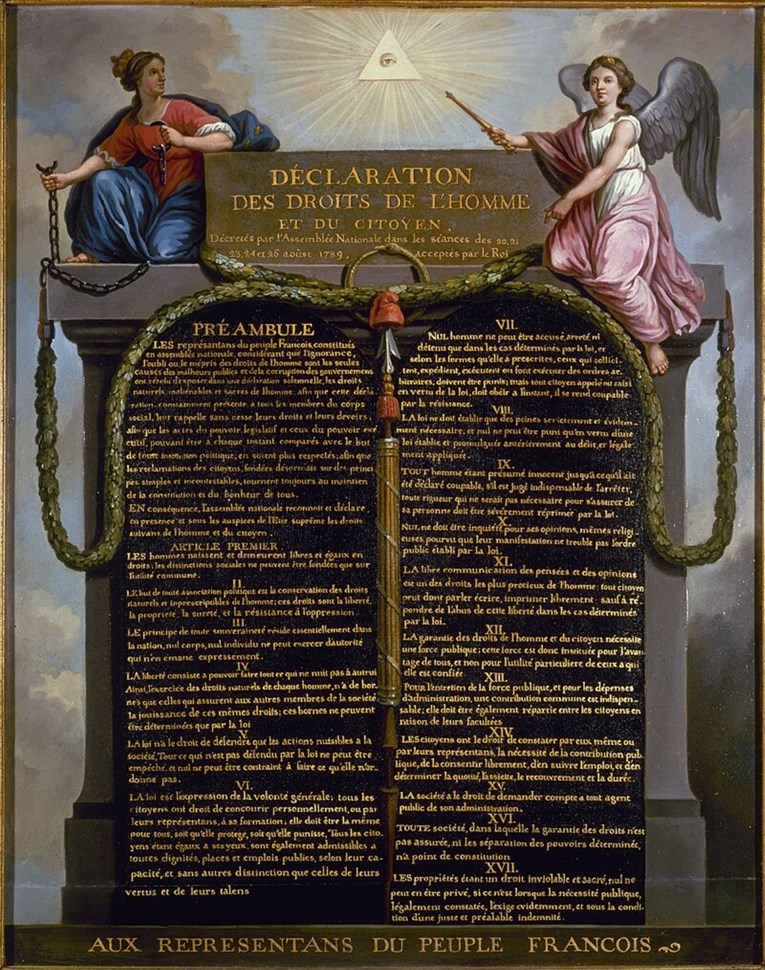 DÉCLARATION
DES DROITS DE L'HOMME
ET DU CITOYEN,
Décretés par l'Assemblée Nationale dans les séances des 20, 21
23, 24 et 26 août 1789, acceptés par le Roi
PRÉAMBULE
LES représantans du peuple François, constitués
en assemblée nationale, considérant que l'ignorance,
l'oubli ou le mépris des droits de l'homme sont les seules
causes des malheurs publics et de la corruption des gouvernemens
ont résolu d'exposer dans une déclaration solemnelle, les droits
naturels, inaliénables et sacrés de l'homme; afin que cette décla
ration, constamment présente a tous les membres du corps
social, leur rappelle sans cesse leurs droits et leurs devoirs;
afin que les actes du pouvoir legislatif et ceux du pouvoir exé
cutif, pouvant être à chaque instant comparés avec le but
de toute institution politique, en soient plus respectés; afin que
les reclamations des citoyens, fondées désormais sur des princi
pes simples et incontestables, tournent toujours au maintien
de la constitution et du bonheur de tous.
EN conséquence, l'assemblée nationale reconnoit et déclare,
en presence et sous les auspices de l'Etre suprême les droits
suivans de l'homme et du citoyen.
ARTICLE PREMIER.
LES hommes naissent et demeurent libres et égaux en
droits; les distinctions sociales ne peuvent être fondées que sur
l'utilité commune.
II.
LE but de toute association politique est la conservation des droits
naturels et inprescriptibles de l'homme; ces droits sont la liberté,
la proprieté, la sureté, et la résistance à l'oppression.
III.
LE principe de toute souveraineté réside essentiellement dans
la nation, nul corps, nul individu ne peut exercer d'autorité
qui n'en émane expressement.
IV.
LA liberté consiste a pouvoir faire tout ce qui ne nuit pas à autrui
Ainsi, l'exercice des droits naturels de chaque homme, n'a de bor-
nes que celles qui assurent aux autres membres de la société
la jouissance de ces mêmes droits; ces bornes ne peuvent
être déterminées que par la loi
V.
LA loi n'a le droit de défendre que les actions nuisibles a la
société. Tout ce qui n'est pas défendu par la loi ne peut être
empêché, et nul ne peut être contraint à faire ce qu'elle n'or-
donne pas.
VI.
LA loi est l'expression de la volonté générale; tous les
citoyens ont droit de concourir personnellement, ou par
leurs représentans, à sa formation; elle doit être la même
pour tous, soit qu'elle protege, soit qu'elle punisse, Tous les cito-
yens étant égaux à ses yeux, sont également admissibles a
toutes dignités, places et emplois publics, selon leur ca-
pacité, et sans autres distinction que celles de leurs
vertus et de leurs talens
VII.
NUL homme ne peut être accusé, arreté ni
détenu que dans les cas déterminés par la loi, et
selon les formes qu'elle à prescrites, ceux qui sollici-
tent, expédient, exécutent ou font exécuter des ordres ar-
bitraires, doivent être punis; mais tout citoyen appelé ou saisi
en vertu de la loi, doit obéir a l'instant, il se rend coupable
par la résistance.
VIII.
LA loi ne doit établir que des peines strictement et évidem-
ment nécessaire, et nul ne peut être puni qu'en vertu d'une
loi établie et promulguée antérierement au délit, et légale-
ment appliquée.
IX.
TOUT homme étant présumé innocent jusqu'a ce qu'il ait
été déclaré coupable, s'il est jugé indispensable de l'arrêter,
toute rigueur qui ne serait pas nécessaire pour s'assurer de
sa personne doit être sévèrement réprimée par la loi.
X.
NUL ne doit être inquiété pour ses opinions, mêmes religi-
euses pourvu que leur manifestation ne trouble pas l'ordre
public établi par la loi.
XI.
LA libre communication des pensées et des opinions
est un des droits les plus précieux de l'homme; tout citoyen
peut donc parler écrire, imprimer librement; sauf à ré-
pondre de l'abus de cette liberté dans les cas déterminés
par la loi.
XII.
LA garantie des droits de l'homme et du citoyen nécessite
une force publique; cette force est donc instituée pour l'avan-
tage de tous, et non pour l'utilité particuliere de ceux a qui
elle est confiée.
XIII.
Pour l'entretien de la force publique, et pour les dépenses
d'administration, une contribution commune est indispen-
sable; elle doit être également répartie entre les citoyens en
raison de leurs facultées
XIV.
LES citoyens ont le droit de constater par eux même ou
par leurs représentans, la nécessité de la contribution pub-
lique, de la consentir librement, d'en suivre l'emploi, et d'en
déterminer la quotité, l'assiette, le recouvrement et la durée.
XV.
LA société a le droit de demander compte a tout agent
public de son administration.
XVI.
TOUTE société, dans laquelle la garantie des droits n'est
pas assurée, ni les séparation des pouvoirs déterminée,
n'a point de constitution
XVII.
LES propriétés étant un droit inviolable et sacré, nul ne
peut en être privé, si ce n'est lorsque la nécessité publique,
légalement constatée, l'exige evidemment, et sous la condi-
tion d'une juste et préalable indemnité.
AUX REPRESENTANS DU PEUPLE FRANCOIS